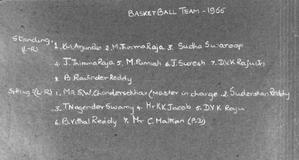 BASKETBALL TEAM - 1966
Standing (L-R) 1. K.M. Arjundas 2. M. Thirma Raja 3. Sudha Swaroop
4. J. Thimma Raju 5. M. Ramesh 6. J. Suresh 7. D.V.K Raju (Jr)
8. B. Ravinder Reddy
Sitting (L-R) 1. Mr. S.W. Chandersekhar (Master in charge 2. Sudershan Reddy
3. T Nagender Swamy 4. Mr KK Jacob 5. D.V.K Raju
6. B. Vithal Reddy 7. Mr C. Mathian (P.D)